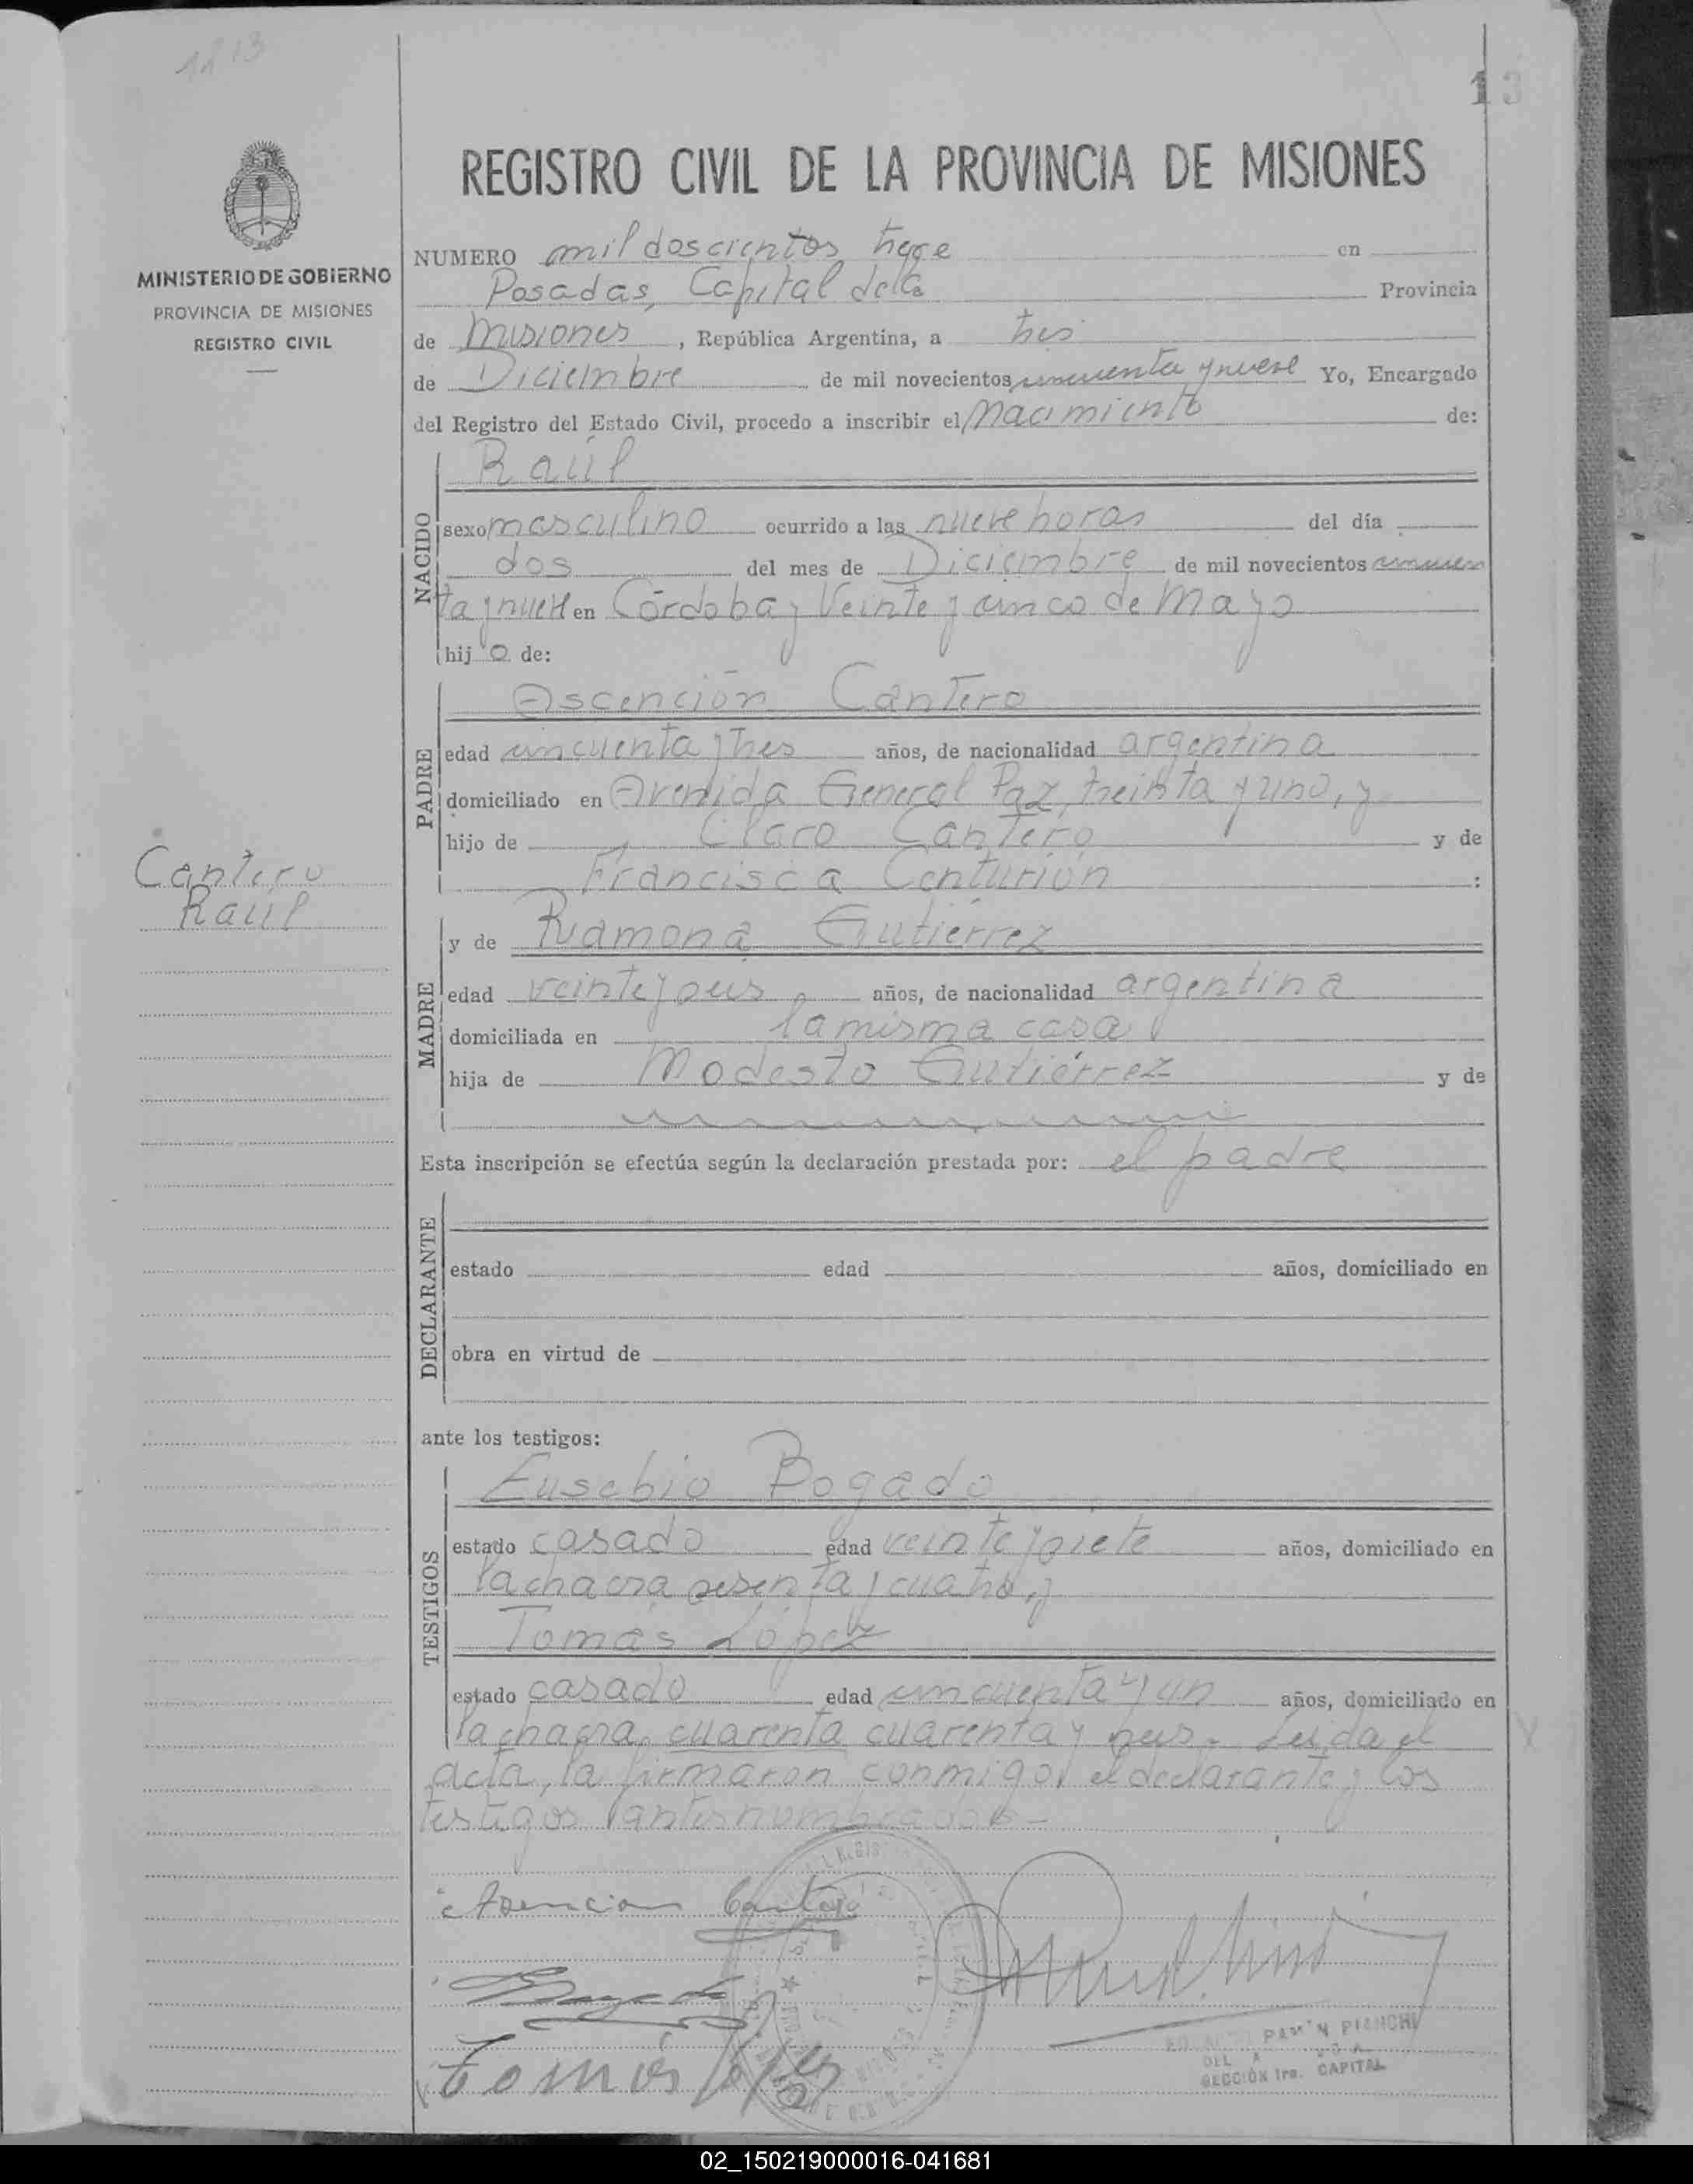 1213
13
REGISTRO CIVIL DE LA PROVINCIA DE MISIONES
MINISTERIO DE GOBIERNO
PROVINCIA DE MISIONES
REGISTRO CIVIL
NUMERO mil doscientos trece en
Posadas, Capital dela Provincia
de Misiones, República Argentina, a tres
de Diciembre de mil novecientos cincuenta y nueve Yo, Encargado
del Registro del Estado Civil, procedo a inscribir el Nacimiento de:
NACIDO
Raúl
sexo masculino ocurrido a las nueve horas del día
dos del mes de Diciembre de mil novecientos cincuen
ta y nueve en Córdoba y Veinte y cinco de Mayo
hij o de:
PADRE
Ascención Cantero
edad cincuenta y tres años, de nacionalidad argentina
domiciliado en Avenida General Paz, treinta y uno, y
hijo de Claro Cantero y de
Francisca Centurión :
Cantero
Raúl
MADRE
y de Ramona Gutiérrez
edad veinte y seis años, de nacionalidad argentina
domiciliada en la misma casa
hija de Modesto Gutiérrez y de
Esta inscripción se efectúa según la declaración prestada por: el padre
DECLARANTE
estado edad años, domiciliado en
obra en virtud de
ante los testigos:
TESTIGOS
Eusebio Bogado
estado casado edad veinte y siete años, domiciliado en
la chacra sesenta y cuatro, y
Tomás López
estado casado edad cincuenta y un años, domiciliado en
la chacra cuarenta cuarenta y tres. Leída el
acta, la firmaron conmigo, el declarante y los
testigos antes nombrados-
Asencion Cantero
Bogado
Tomás López
PIANCHI
SECCIÓN 1ra. CAPITAL
02_150219000016-041681